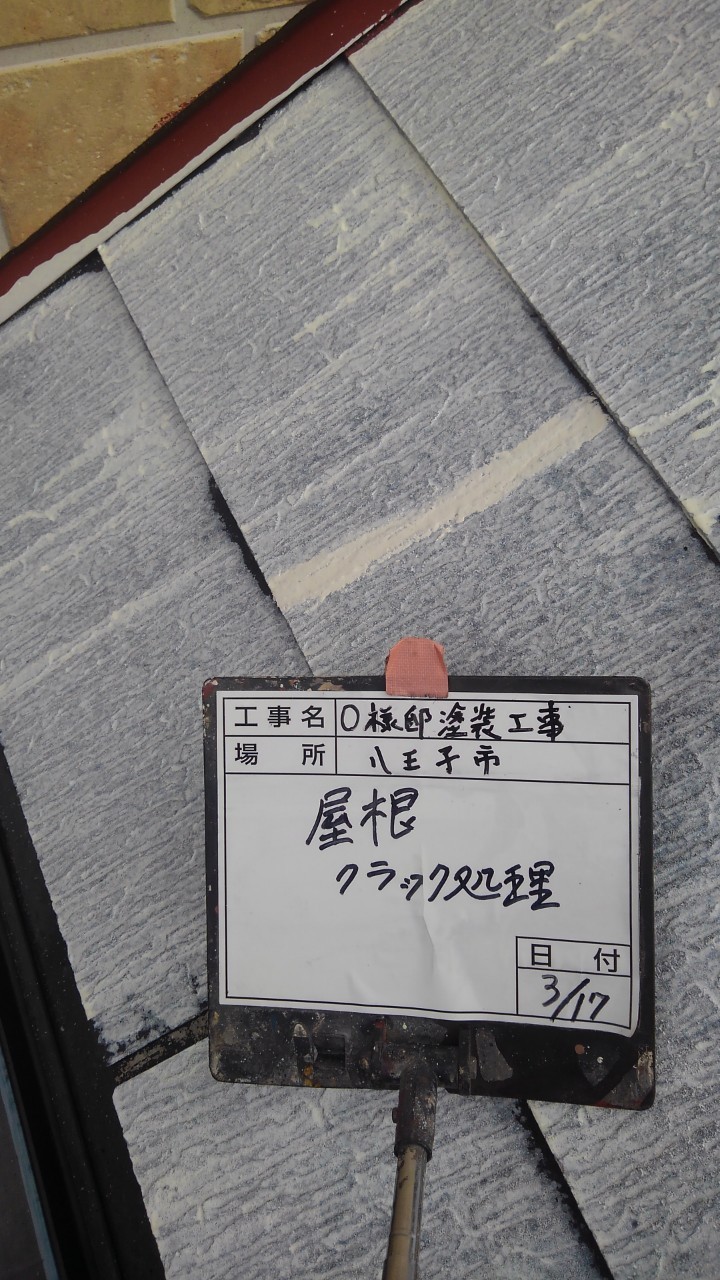 工事名 O様邸塗装工事
場所 八王子市
屋根
クラック処理
日付
3/17